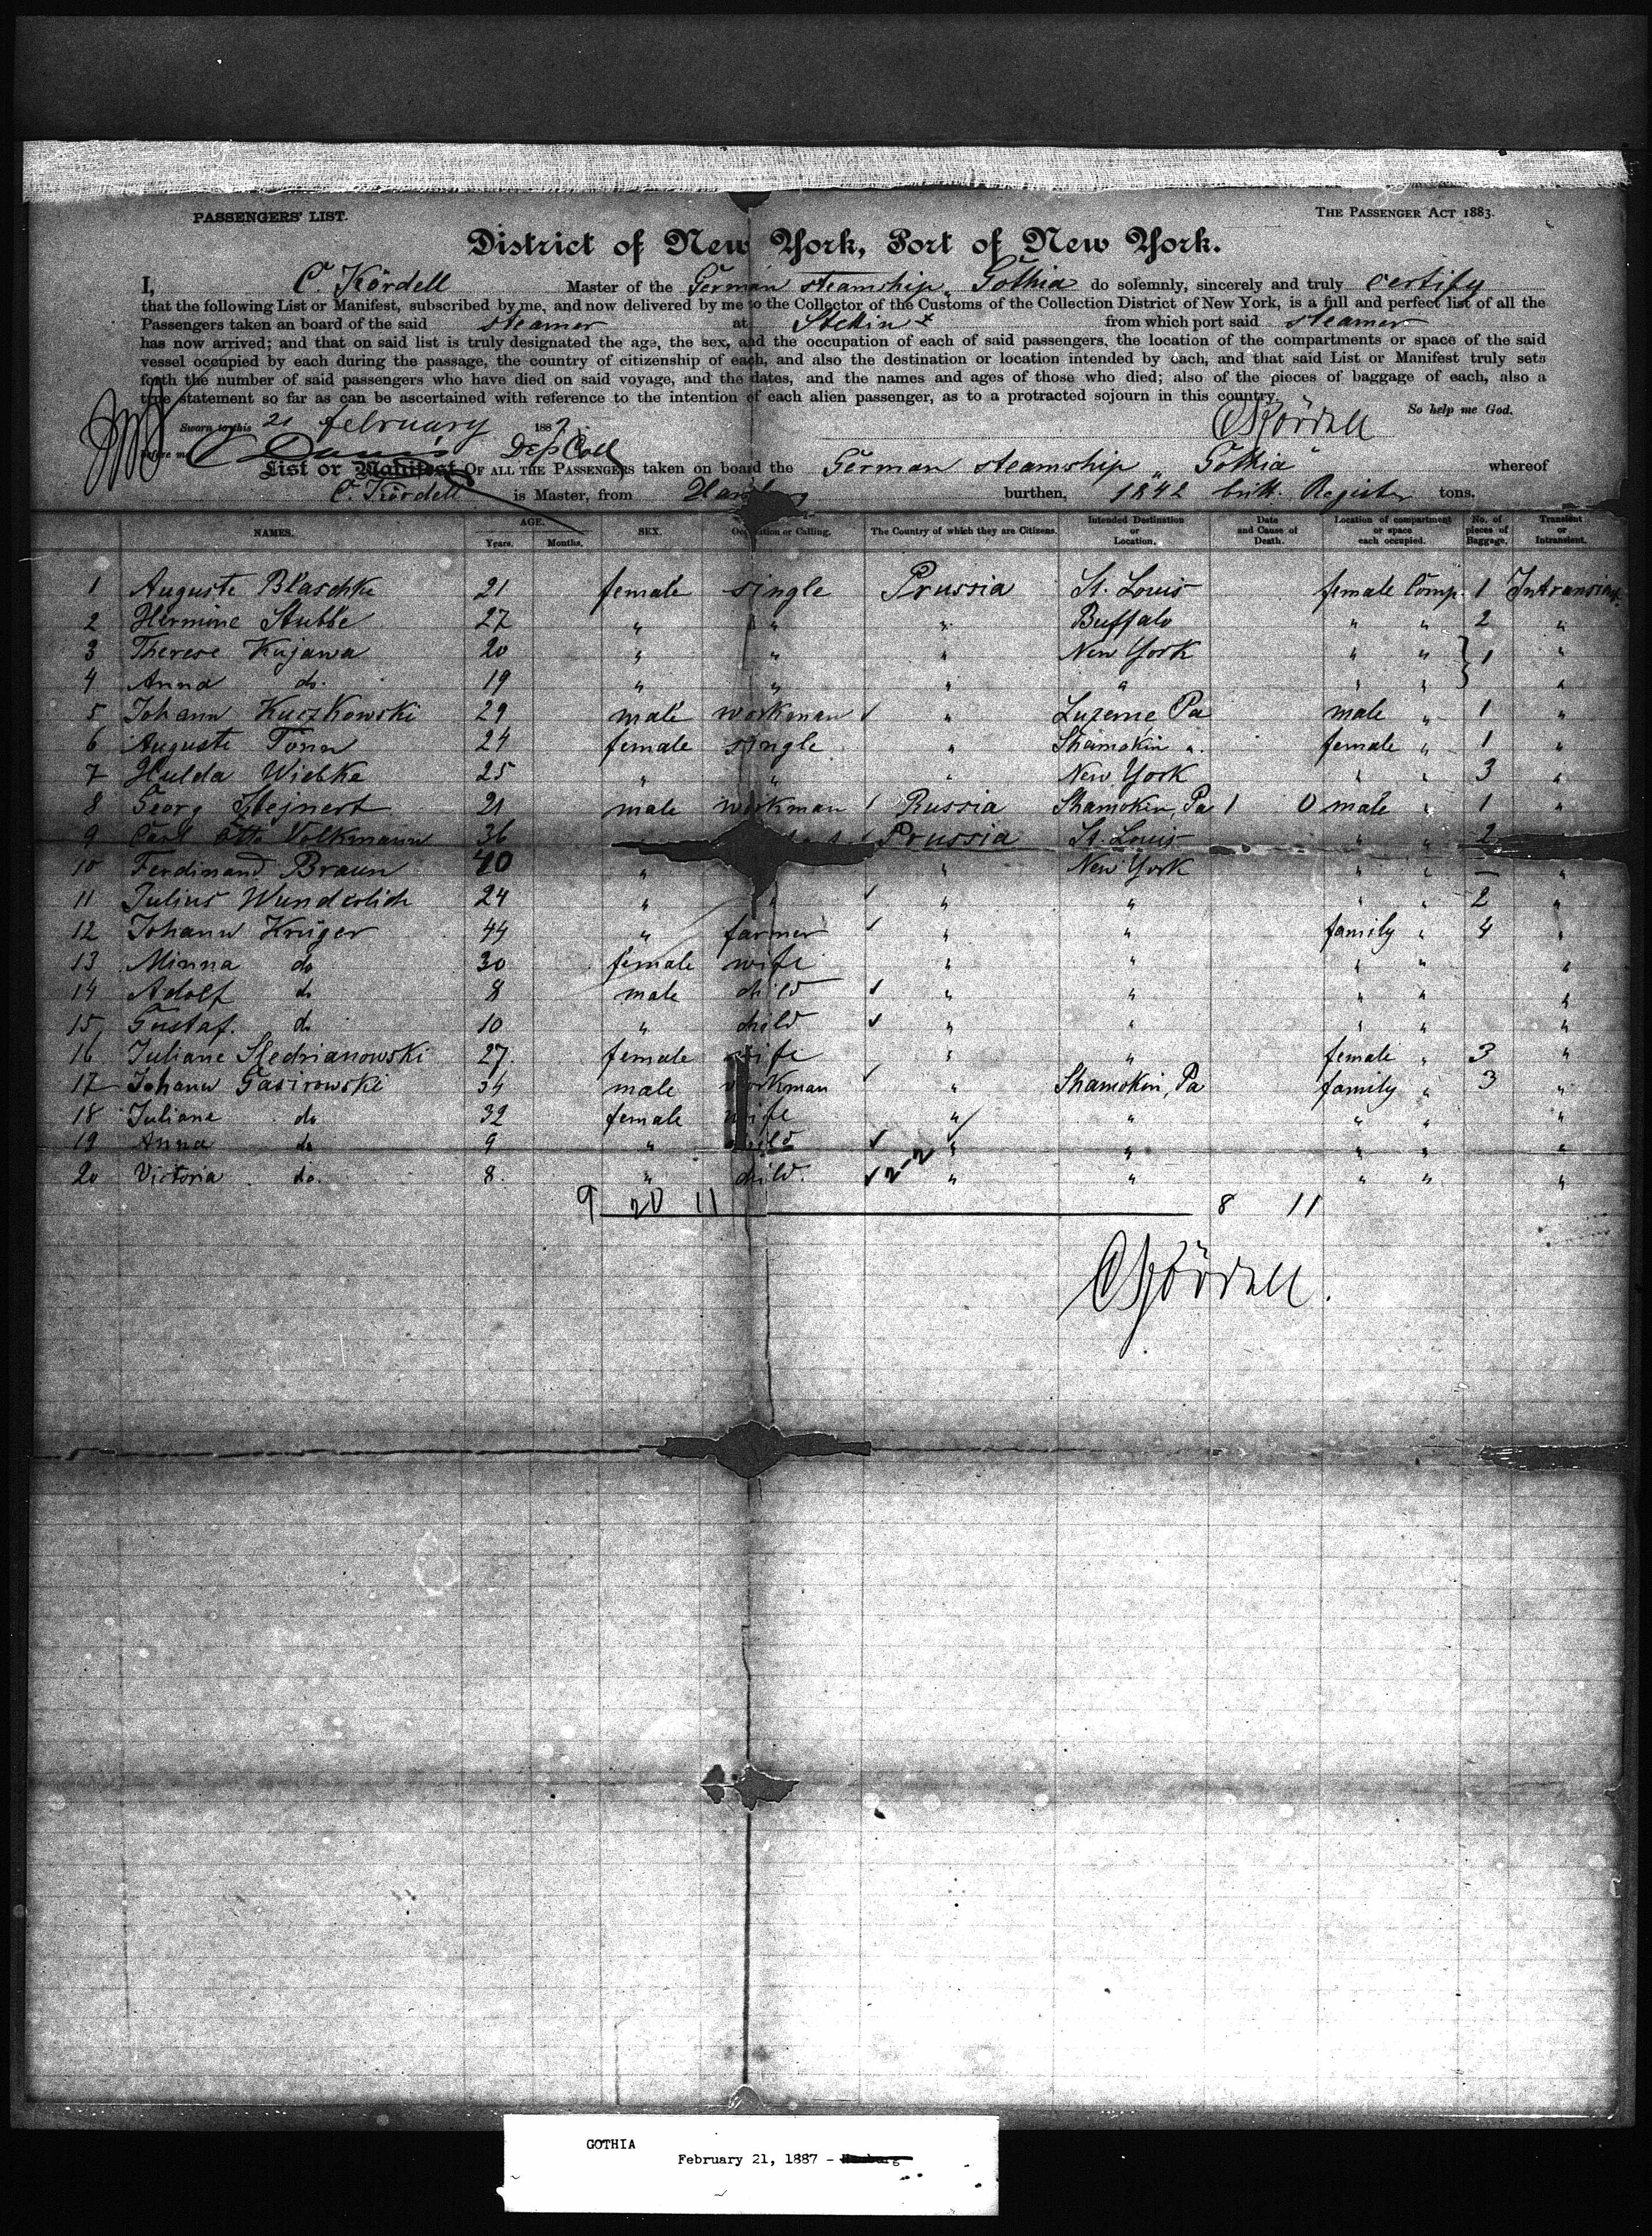 PASSENGERS' LIST. THE PASSENGER ACT 1883.
District of New York, Port of New York.
I, C. Kördell Master of the German steamship "Gothia do solemnly, sincerely and truly certify
that the following List or Manifest, subscribed by me, and now delivered by me to the Collector of the Customs of the Collection District of New York, is a full and perfect list of all the
Passengers taken an board of the said steamer at Stettin + from which port said steamer
has now arrived; and that on said list is truly designated the age, the sex, and the occupation of each of said passengers, the location of the compartments or space of the said
vessel occupied by each during the passage, the country of citizenship of each, and also the destination or location intended by each, and that said List or Manifest truly sets
forth the number of said passengers who have died on said voyage, and the dates, and the names and ages of those who died; also of the pieces of baggage of each, also a
true statement so far as can be ascertained with reference to the intention of each alien passenger, as to a protracted sojourn in this country.
So help me God.
Sworn to this 21 february 1887 CKördell
before me C Davis Dep Coll
List or Manifest OF ALL THE PASSENGERS taken on board the German steamship "Gothia" whereof
C. Kördell is Master, from Hamburg burthen, 1842 britt. Register tons.
NAMES. AGE. Years. Months. SEX. Occupation or Calling. The Country of which they are Citizens. Intended Destination or Location. Date and Cause of Death. Location of compartment or space each occupied. No. of pieces of Baggage. Transient or Intransient.
1 Auguste Blaschke 21 female single Prussia St. Louis female Comp. 1 Intransient
2 Hermine Stubbe 27 " " " Buffalo " " 2 "
3 Therese Kujawa 20 " " " New York " " } 1 "
4 Anna do. 19 " " " " " " "
5 Johann Kuczkowski 29 male workman ✓ " Luzerne Pa male " 1 "
6 Auguste Tönn 24 female single " Shamokin ". female " 1 "
7 Hulda Wiebke 25 " " " New York " " 3 "
8 Georg Stejnert 21 male workman / Russia Shamokin, Pa 1 0 male " 1 "
9 Carl Otto Volkmann 36 Prussia St. Louis " " 2
10 Ferdinand Braun 40 " " New York " " — "
11 Julius Wunderlich 24 " " ✓ " " " " 2 "
12 Johann Krüger 44 " farmer ✓ " " family " 4 "
13 Minna do 30 female wife " " " " "
14 Adolf do 8 male child ✓ " " " " "
15 Gustaf. do 10 " child ✓ " " " " "
16 Juliane Sledrianowski 27. female wife " " female " 3 "
17 Johann Gasirowski 34 male workman ✓ " Shamokin, Pa family " 3 "
18 Juliane do 32 female wife " " " " "
19 Anna do 9 " child ✓ " " " " "
20 Victoria do. 8. " child. ✓ 2-2 " " " " "
9 20 11 8 11
CKördell.
GOTHIA
February 21, 1887 - Hamburg